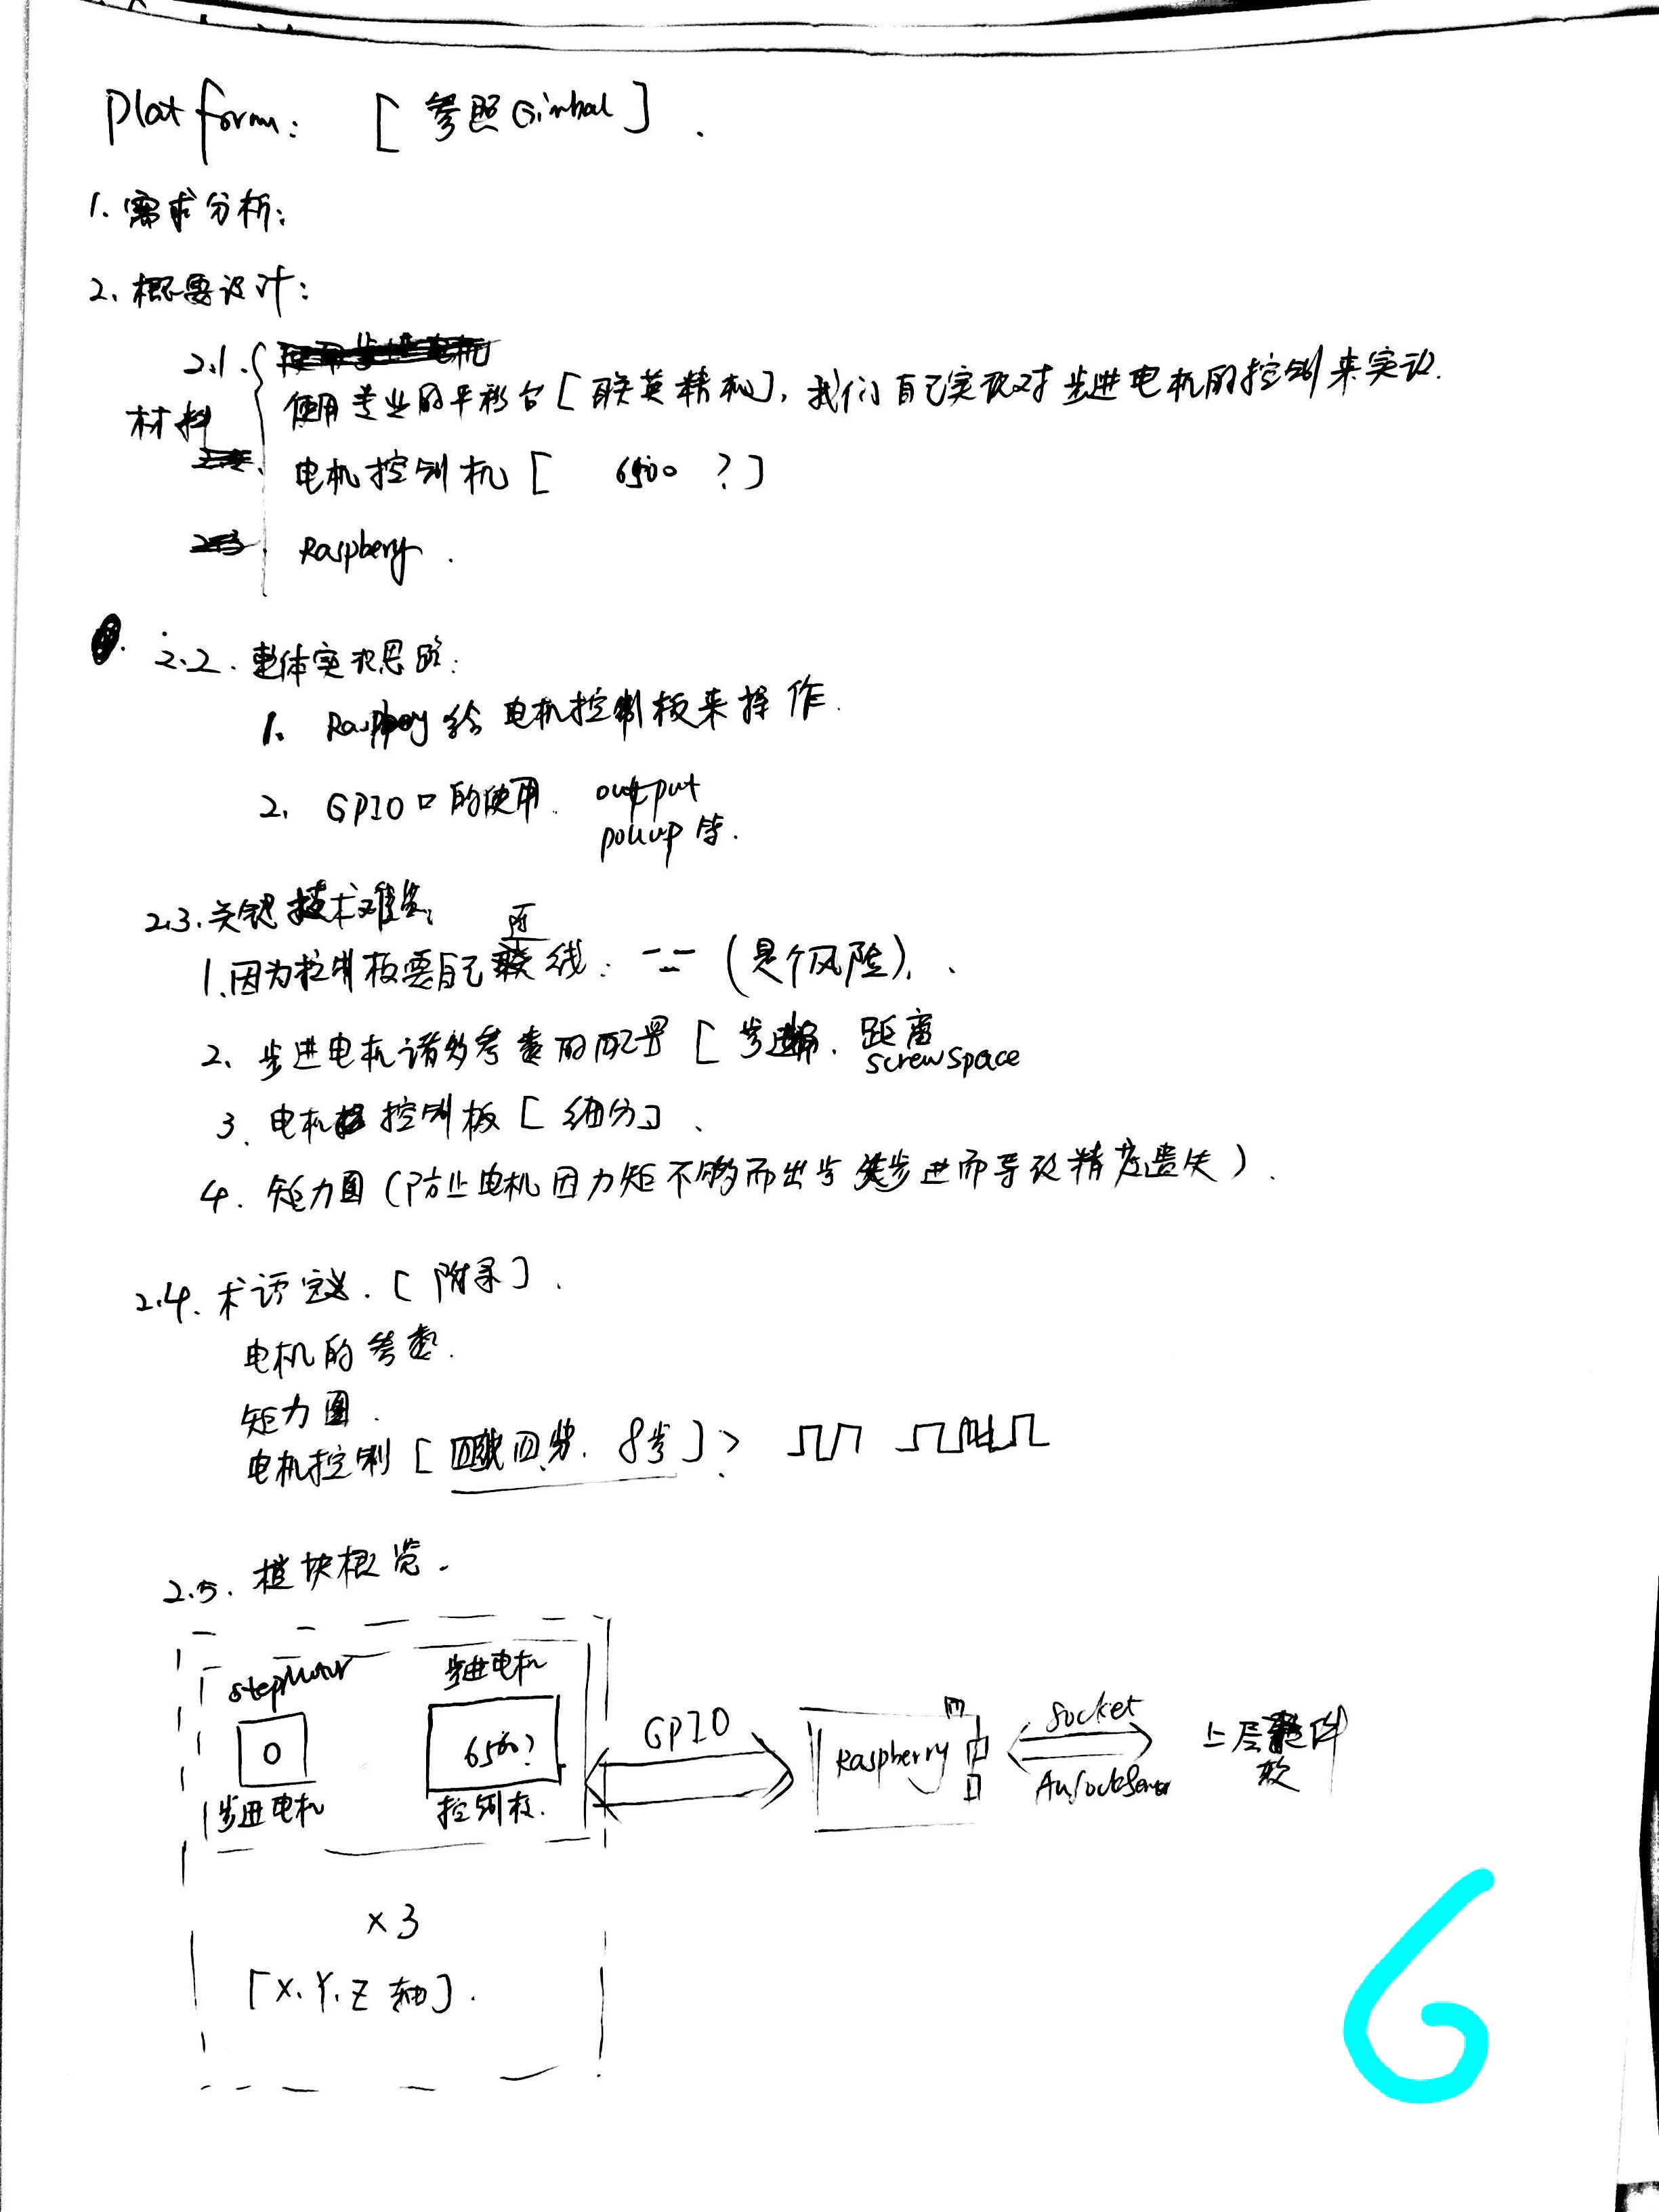 platform: [参照Gimbal].
1. 需求分析:
2. 概要设计:
2.1.
材料
使用专业的平移台[联英精机],我们自己实现对步进电机的控制来实现.
电机控制机[ 6500 ?]
Raspbery.
2.2. 整体实现思路:
1. Raspbery给电机控制板来操作.
2. GPIO口的使用. output
pollup等.
2.3. 关键技术难点:
1. 因为控制板要自己 线: (是个风险).
2. 步进电机诸多参数的配置[步进 . 距离
screwspace
3. 电机控制板[细分].
4. 矩力图(防止电机因力矩不够而出步 步进而导致精度遗失).
2.4. 术语定义.[附录].
电机的参数.
矩力图.
电机控制[四步. 8步]>
2.5. 模块概览.
stepMotor
步进电机
6500?
步进电机
控制板.
GPIO
Raspberry
Socket
上层 件
软
×3
[X.Y.Z轴].
6